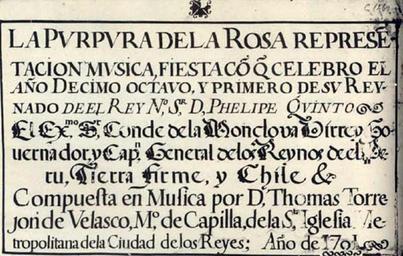 LA PVRPVRA DE LA ROSA REPRESĒ
TACION MVSICA, FIESTA CÕ Q̃ CELEBRO EL
AÑO DECIMO OCTAVO, Y PRIMERO DE SV REY
NADO DE EL REY Nº. Sʳ. D, PHELIPE QVINTO
El Exᵐᵒ. Sʳ. Conde de la Monclova Virrey Go
vernador, y Capⁿ. General de los Reynos de el Pe
ru, Tierra firme, y Chile &
Compuesta en Musica por D. Thomas Torre
jon de Velasco, Mº. de Capilla, de la Sᵗᵃ. Iglesia Me
tropolitana de la Ciudad de los Reyes; Año de 1701